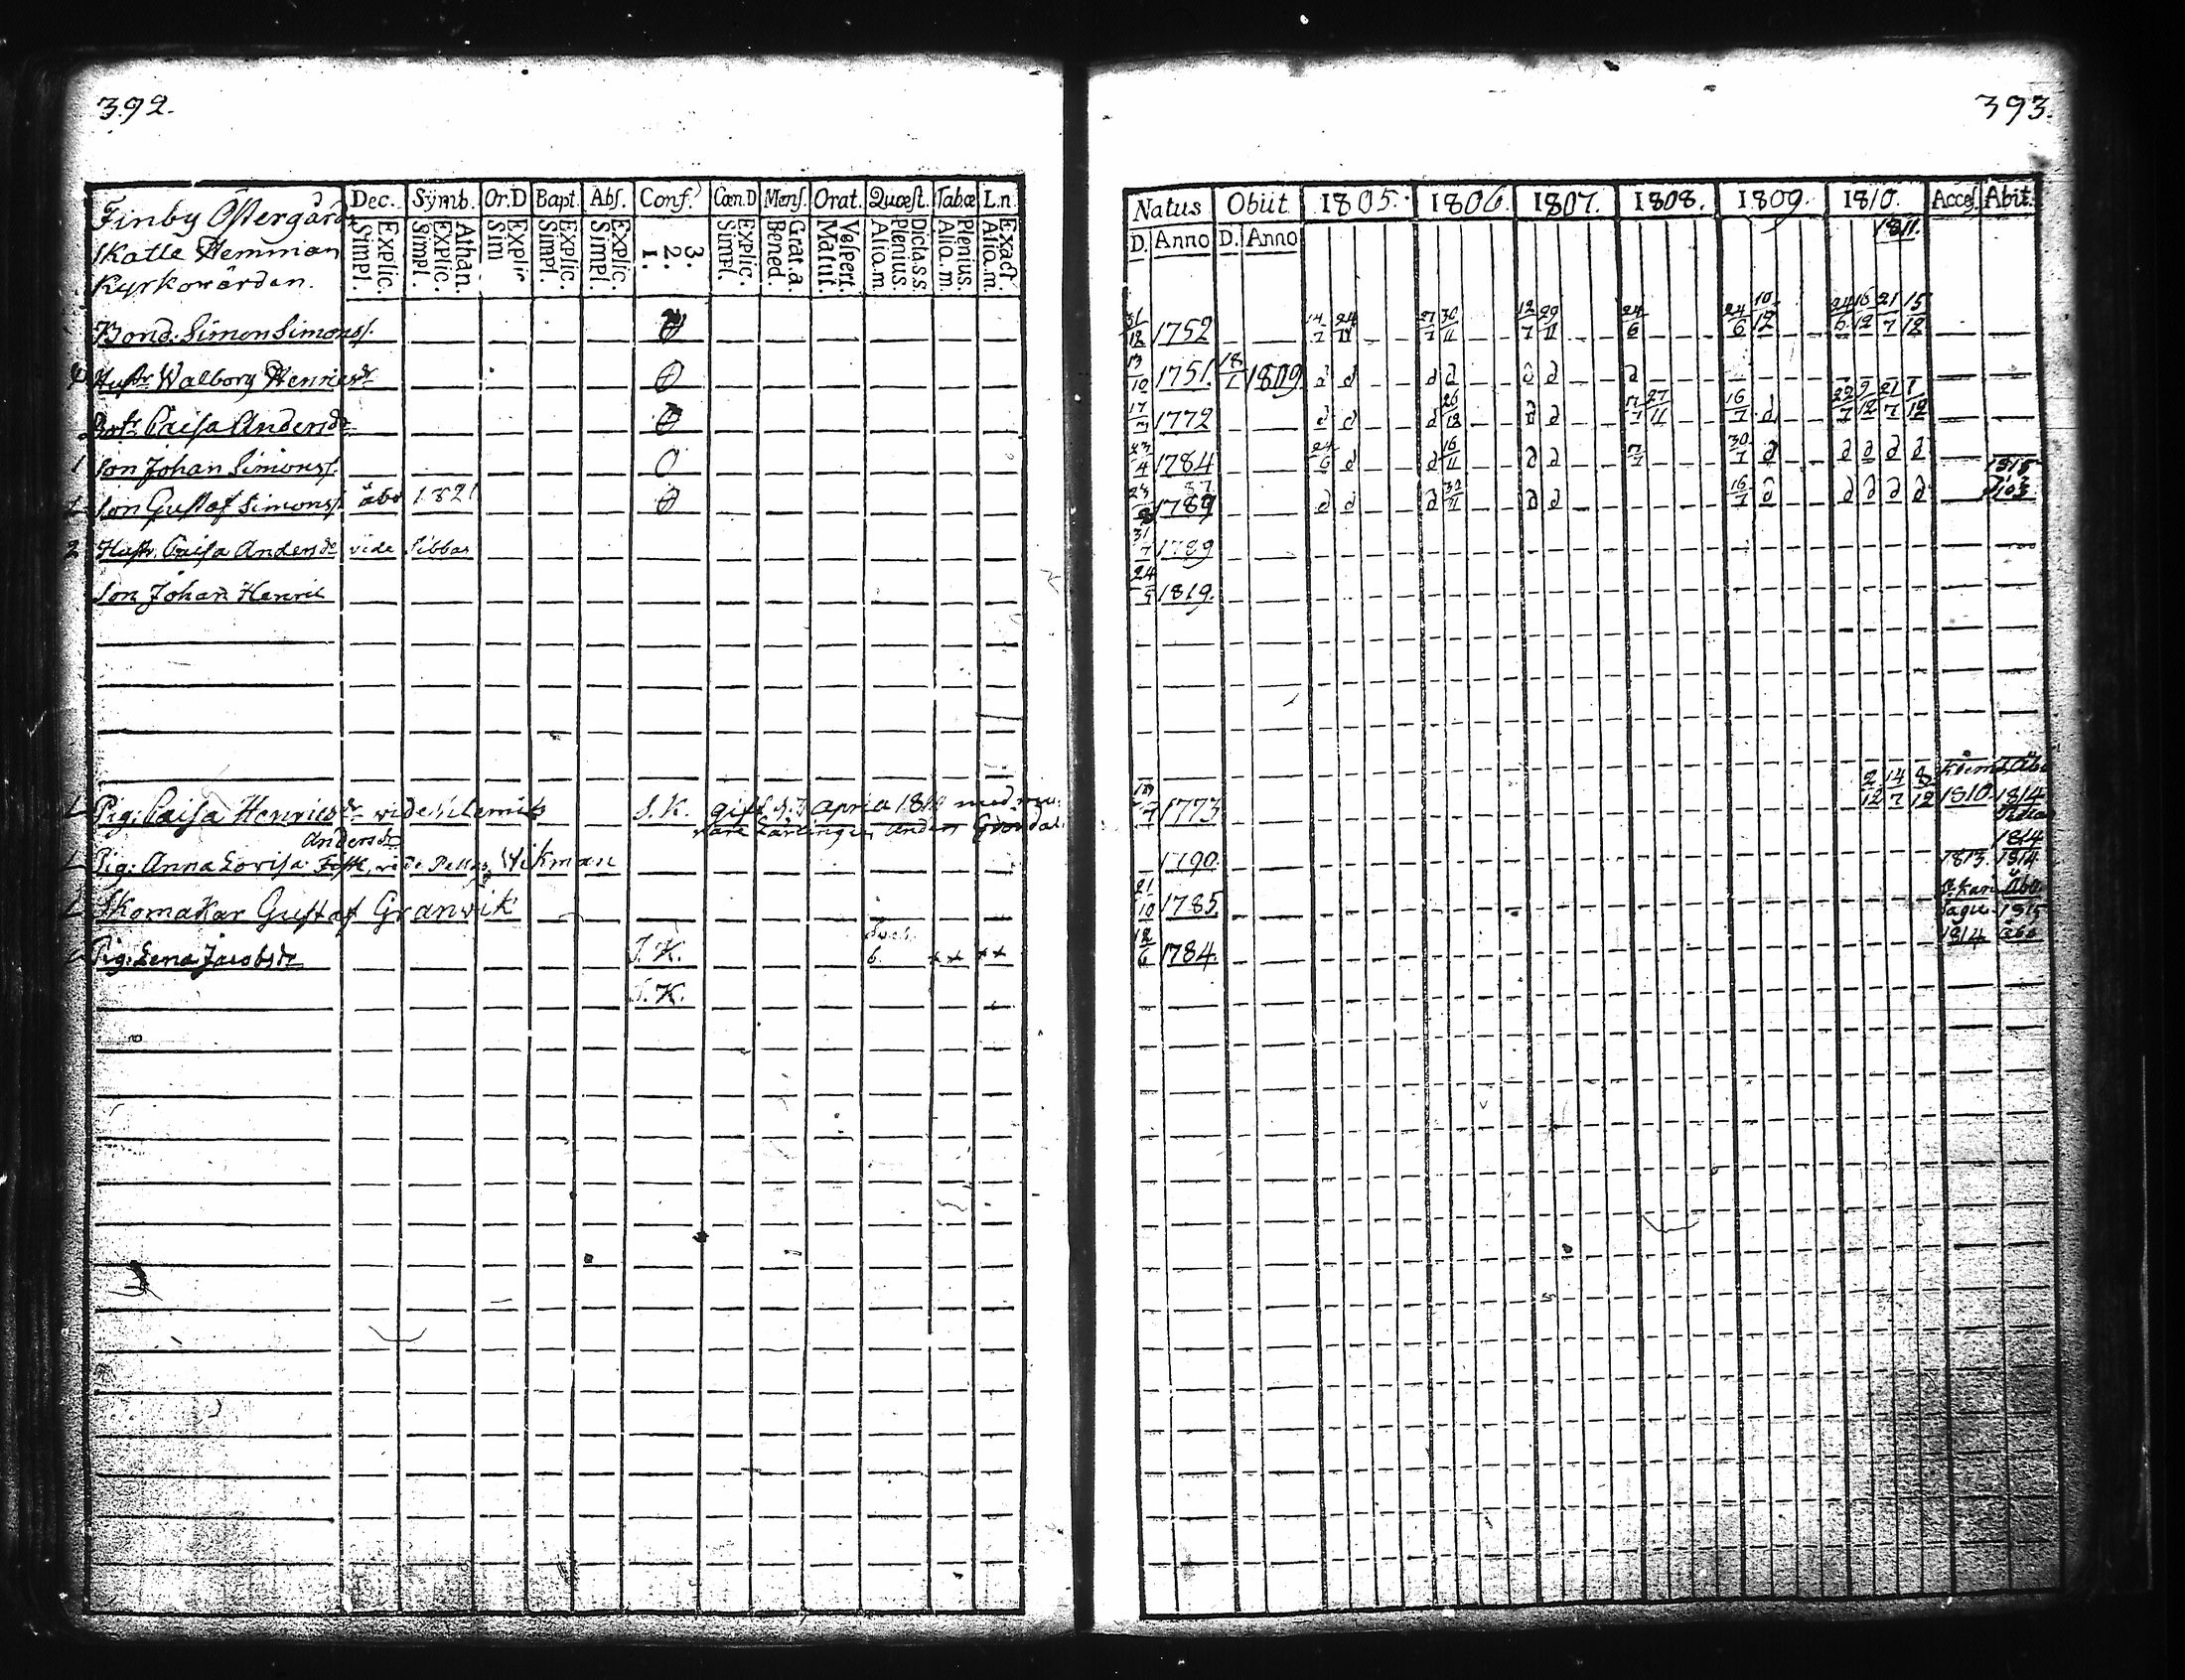 392.
Finby Östergård
Skatte Hemman
Kyrkowärden.
Dec. Symb. Or.D Bapt. Abs. Conf. Cœn.D Mens. Orat. Quæst. Tabæ L.n
Simpl. Explic. Simpl. Explic. Athan. Sim Explic Simpl. Explic. Simpl. Explic. 1. 2. 3. Simpl. Explic. Bened. Grat.a. Matut. Vespert. Alio.m. Plenius. Dict.a.s.s Alio.m. Plenius. Alio.m. Exact.
Bond. Simon Simonss.
Hustr Walborg Henricsdr
Caisa Andersdr
Son Johan Simonss.
Son Gustaf Simonss. åbo 1821
Hustr. Caisa Andersdr vide Sibbas
Son Johan Henric
Pig: Caisa Henricsdr vide S.K. gift d. April med
Andersdr
Pig: Anna Lovisa Wikman
Skomakar Gustaf Granvik
Pig: Lena Jacobsdr S.K. 6.
S.K.
393.
Natus Obiit. 1805. 1806. 1807. 1808. 1809. 1810. Acces. Abit.
D. Anno D. Anno 1811.
31/12 1752 14/7 24/11 27/7 30/11 12/7 29/11 24/6 24/6 10/12 24/6 16/12 21/7 15/12
13/10 1751. 18/1 1809 d d d d d d d
17/3 1772 d d d 26/12 d d 7/7 27/11 16/7 d 22/7 9/12 21/7 1/12
23/4 1784 24/6 d d 16/11 d d 7/7 30/7 d d d d d
87
1789 d d d 30/11 d d 16/7 d d d d d 1818
31/7 1789
24/5 1819.
1773 2/12 14/7 8/12 1810. 1814
1814
1790. 1813. 1814
21/10 1785. Åbo
1815
12/6 1784. 1814 Åbo